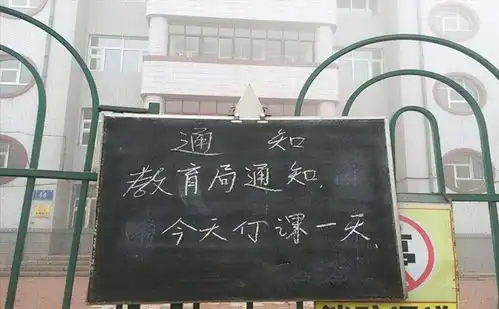 通 知
教育局通知.
今天仃课一天.